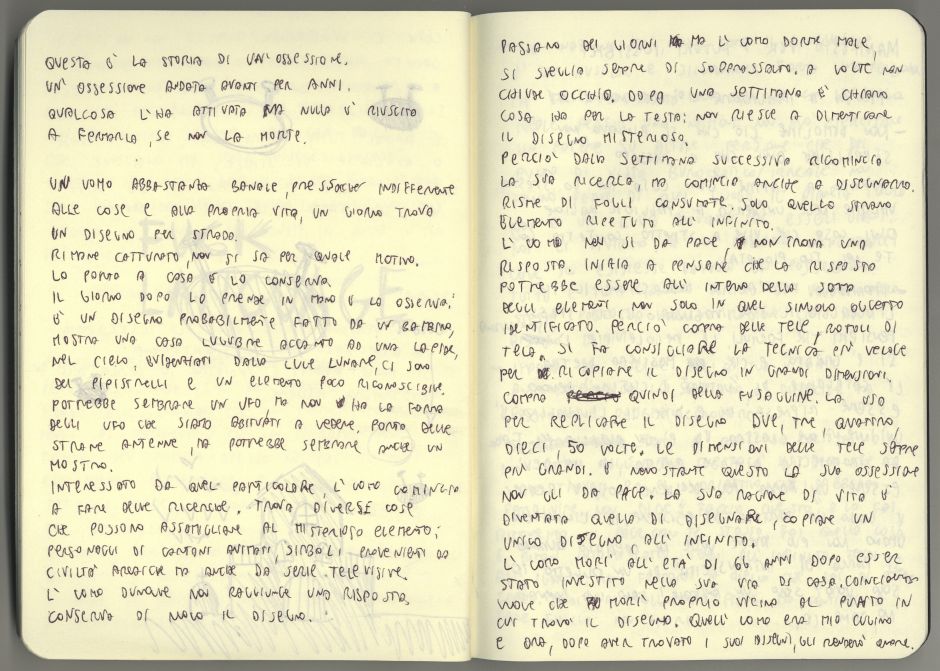 QUESTA È LA STORIA DI UN'OSSESSIONE.
UN'OSSESSIONE ANDATA AVANTI PER ANNI.
QUALCOSA L'HA ATTIVATA MA NULLA È RIUSCITO
A FERMARLA, SE NON LA MORTE.
UN UOMO ABBASTANZA BANALE, PRESSOCHE' INDIFFERENTE
ALLE COSE E ALLA PROPRIA VITA, UN GIORNO TROVA
UN DISEGNO PER STRADA.
RIMANE CATTURATO, NON SI SA PER QUALE MOTIVO.
LO PORTA A CASA E LO CONSERVA.
IL GIORNO DOPO LO PRENDE IN MANO E LO OSSERVA:
È UN DISEGNO PROBABILMENTE FATTO DA UN BAMBINO,
MOSTRA UNA CASA LUGUBRE ACCANTO AD UNA LAPIDE,
NEL CIELO, EVIDENZIATI DALLA LUCE LUNARE, CI SONO
DEI PIPISTRELLI E UN ELEMENTO POCO RICONOSCIBILE.
POTREBBE SEMBRARE UN UFO, MA NON HA LA FORMA
DEGLI UFO CHE SIAMO ABITUATI A VEDERE, PORTA DELLE
STRANE ANTENNE, MA POTREBBE SEMBRARE ANCHE UN
MOSTRO.
INTERESSATO DA QUEL PARTICOLARE, L'UOMO COMINCIA
A FARE DELLE RICERCHE. TROVA DIVERSE COSE
CHE POSSONO ASSOMIGLIARE AL MISTERIOSO ELEMENTO:
PERSONAGGI DI CARTONI ANIMATI, SIMBOLI PROVENIENTI DA
CIVILTÀ ARCAICHE MA ANCHE DA SERIE TELEVISIVE.
L'UOMO DUNQUE NON RAGGIUNGE UNA RISPOSTA,
CONSERVA DI NUOVO IL DISEGNO.
PASSANO DEI GIORNI MA L'UOMO DORME MALE,
SI SVEGLIA SEMPRE DI SOPRASSALTO. A VOLTE NON
CHIUDE OCCHIO. DOPO UNA SETTIMANA È CHIARO
COSA HA PER LA TESTA: NON RIESCE A DIMENTICARE
IL DISEGNO MISTERIOSO.
PERCIÒ DALLA SETTIMANA SUCCESSIVA RICOMINCIA
LA SUA RICERCA, MA COMINCIA ANCHE A DISEGNARLO.
RISME DI FOGLI CONSUMATE. SOLO QUELLO STRANO
ELEMENTO RIPETUTO ALL'INFINITO.
L'UOMO NON SI DA PACE, NON TROVA UNA
RISPOSTA. INIZIA A PENSARE CHE LA RISPOSTA
POTREBBE ESSERE ALL'INTERNO DELLA SOMMA
DEGLI ELEMENTI NON SOLO IN QUEL SINGOLO OGGETTO
IDENTIFICATO. PERCIÒ COMPRA DELLE TELE, ROTOLI DI
TELA. SI FA CONSIGLIARE LA TECNICA PIÙ VELOCE
PER RICOPIARE IL DISEGNO IN GRANDI DIMENSIONI.
COMPRA QUINDI DELLA FUSAGGINE. LA USA
PER REPLICARE IL DISEGNO DUE, TRE, QUATTRO,
DIECI, 50 VOLTE. LE DIMENSIONI DELLE TELE SEMPRE
PIÙ GRANDI. E NONOSTANTE QUESTO LA SUA OSSESSIONE
NON GLI DA PACE. LA SUA RAGIONE DI VITA È
DIVENTATA QUELLA DI DISEGNARE, COPIARE UN
UNICO DISEGNO, ALL'INFINITO.
L'UOMO MORÌ ALL'ETÀ DI 66 ANNI DOPO ESSER
STATO INVESTITO NELLA SUA VIA DI CASA. COINCIDENZA
VUOLE CHE MORÌ PROPRIO VICINO AL PUNTO IN
CUI TROVÒ IL DISEGNO. QUELL'UOMO ERA MIO CUGINO
E ORA, DOPO AVER TROVATO I SUOI DISEGNI, GLI RENDERÒ ONORE.